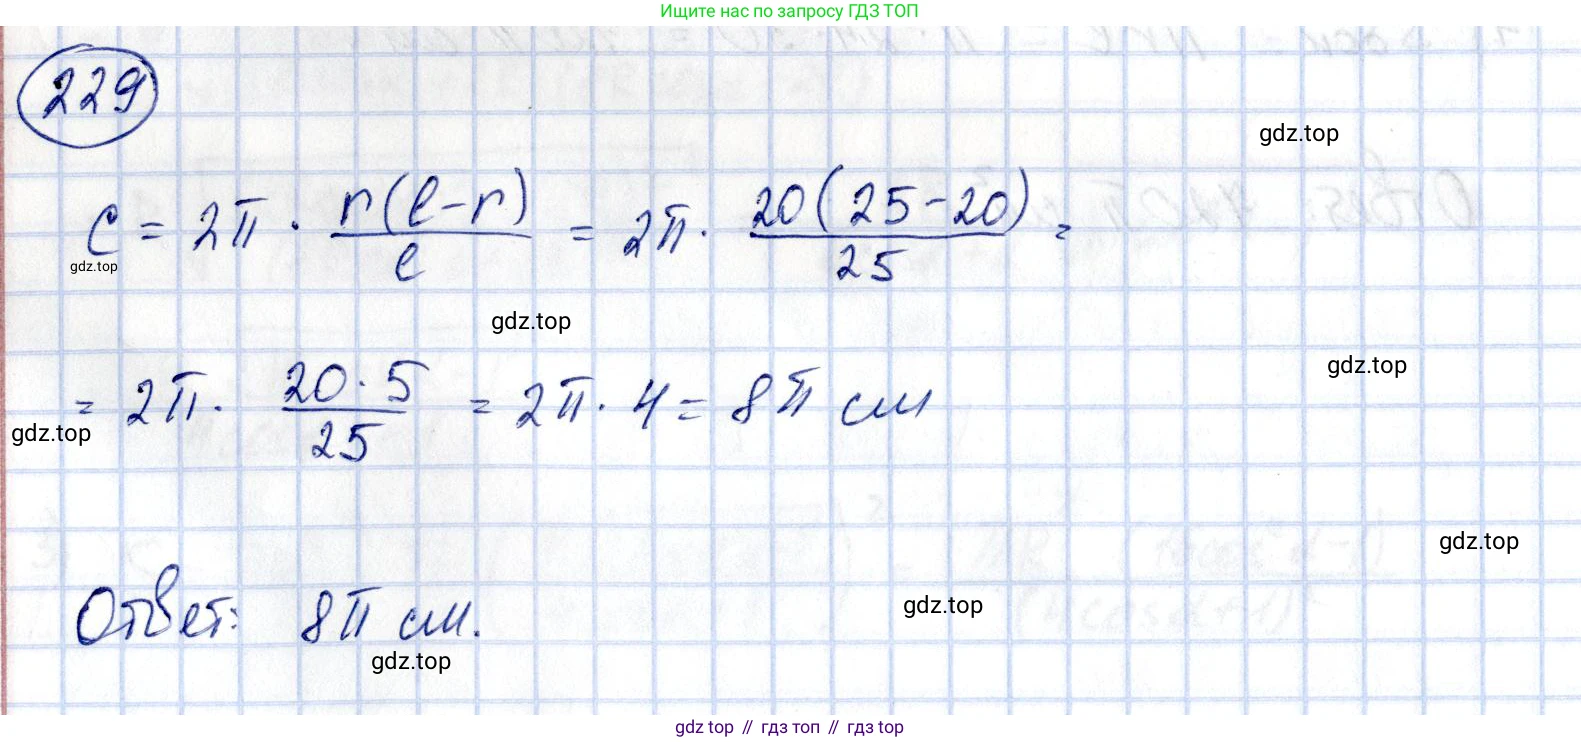 Ищите нас по запросу ГДЗ ТОП
229
gdz.top
C = 2π · r(l-r)/l = 2π · 20(25-20)/25 =
gdz.top
gdz.top
gdz.top
= 2π · 20·5/25 = 2π · 4 = 8π см
gdz.top
gdz.top
gdz.top
Ответ: 8π см.
gdz.top
gdz.top // гдз топ // гдз top